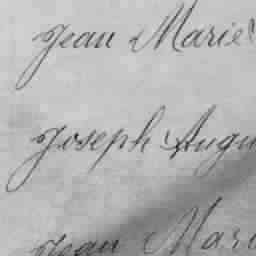 Jean Marie
Joseph Augu
Jean Mari